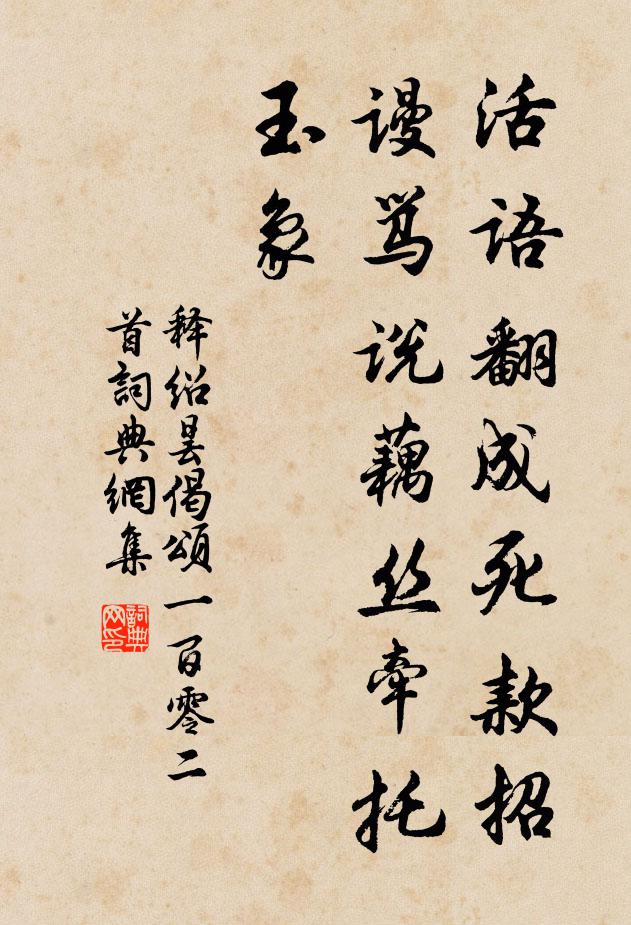 活语翻成死款招
谩骂说藕丝牵托
玉象
释绍昙偈頌一百零二
首詞典網集
詞典
网印